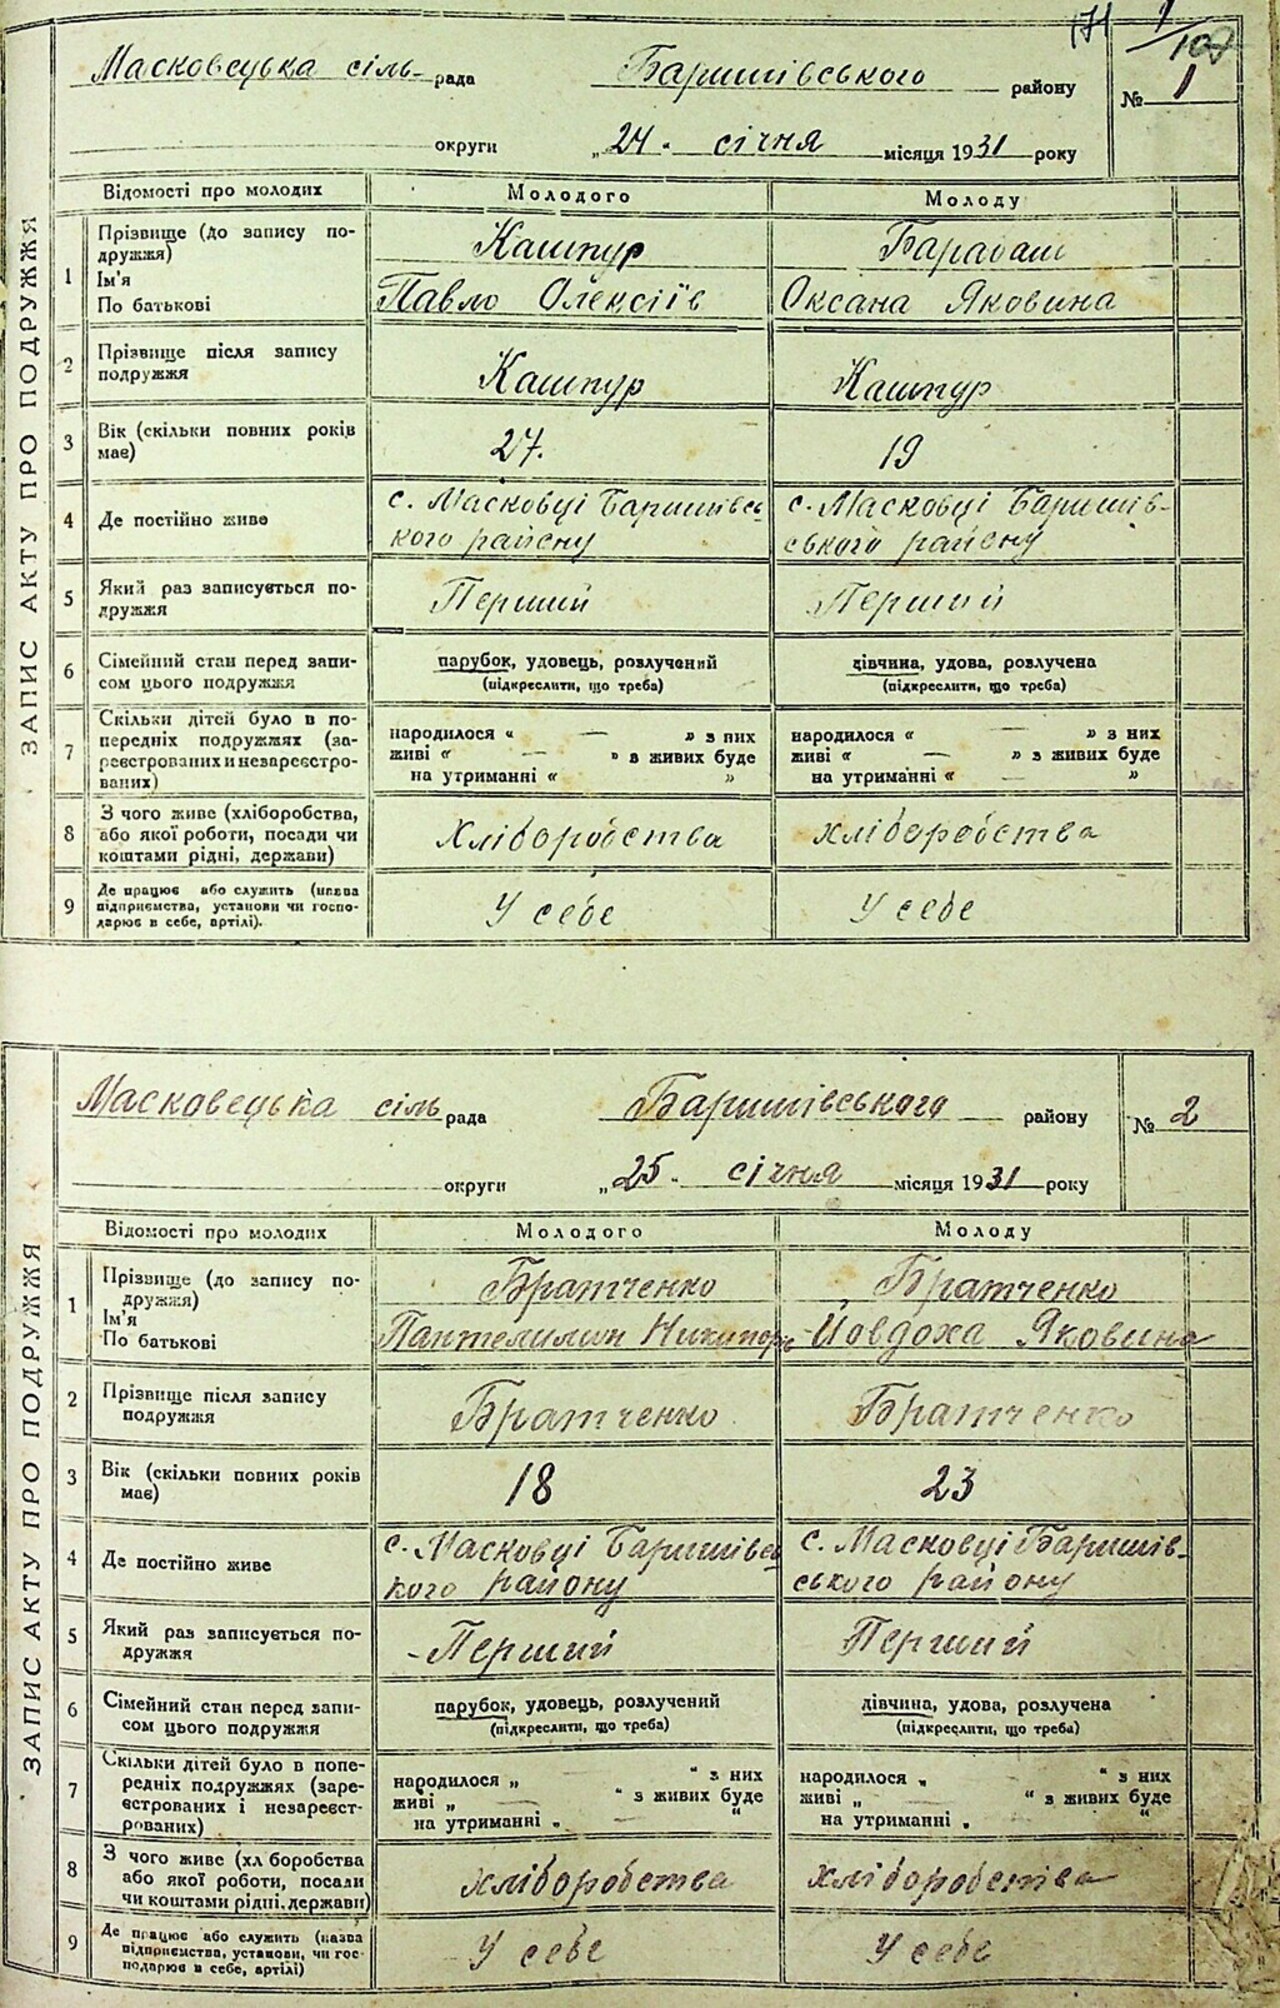 171 1/107
Масковецька сіль- рада Баришівського району № 1
округи „24" січня місяця 1931 року
ЗАПИС АКТУ ПРО ПОДРУЖЖЯ
Відомості про молодих Молодого Молоду
1 Прізвище (до запису по- Кашпур Барабаш
дружжя)
Ім'я Павло Олексіїв Оксана Яковина
По батькові
2 Прізвище після запису Кашпур Кашпур
подружжя
3 Вік (скільки повних років 27. 19
має)
4 Де постійно живе с. Масковці Баришівсь- с. Масковці Баришів-
кого району ського району
5 Який раз записується по- Перший Перший
дружжя
6 Сімейний стан перед запи- парубок, удовець, розлучений дівчина, удова, розлучена
сом цього подружжя (підкреслити, що треба) (підкреслити, що треба)
7 Скільки дітей було в по- народилося “ — „ з них народилося “ — „ з них
передніх подружжях (за- живі “ — „ з живих буде живі “ — „ з живих буде
реєстрованих и незареєстро- на утриманні “ „ на утриманні “ — „
ваних)
8 З чого живе (хліборобства, хліборобства хліборобства
або якої роботи, посади чи
коштами рідні, держави)
9 Де працює або служить (назва У себе У себе
підприємства, установи чи госпо-
дарює в себе, артілі).
Масковецька сіль рада Баришівського району № 2
округи „25" січня місяця 1931 року
ЗАПИС АКТУ ПРО ПОДРУЖЖЯ
Відомості про молодих Молодого Молоду
1 Прізвище (до запису по- Братченко Братченко
дружжя)
Ім'я Пантелимон Никипорів Йовдоха Яковина
По батькові
2 Прізвище після запису Братченко Братченко
подружжя
3 Вік (скільки повних років 18 23
має)
4 Де постійно живе с. Масковці Баришівсь с. Масковці Баришів-
кого району ського району
5 Який раз записується по- Перший Перший
дружжя
6 Сімейний стан перед запи- парубок, удовець, розлучений дівчина, удова, розлучена
сом цього подружжя (підкреслити, що треба) (підкреслити, що треба)
7 Скільки дітей було в попе- народилося „ “ з них народилося „ “ з них
редніх подружжях (заре- живі „ — “ з живих буде живі „ — “ з живих буде
єстрованих і незареєст- на утриманні „ — “ на утриманні „ — “
рованих)
8 З чого живе (хл боробства хліборобства хліборобства
або якої роботи, посади
чи коштами рідні, держави)
9 Де працює або служить (назва У себе У себе
підприємства, установи, чи гос-
подарює в себе, артілі)